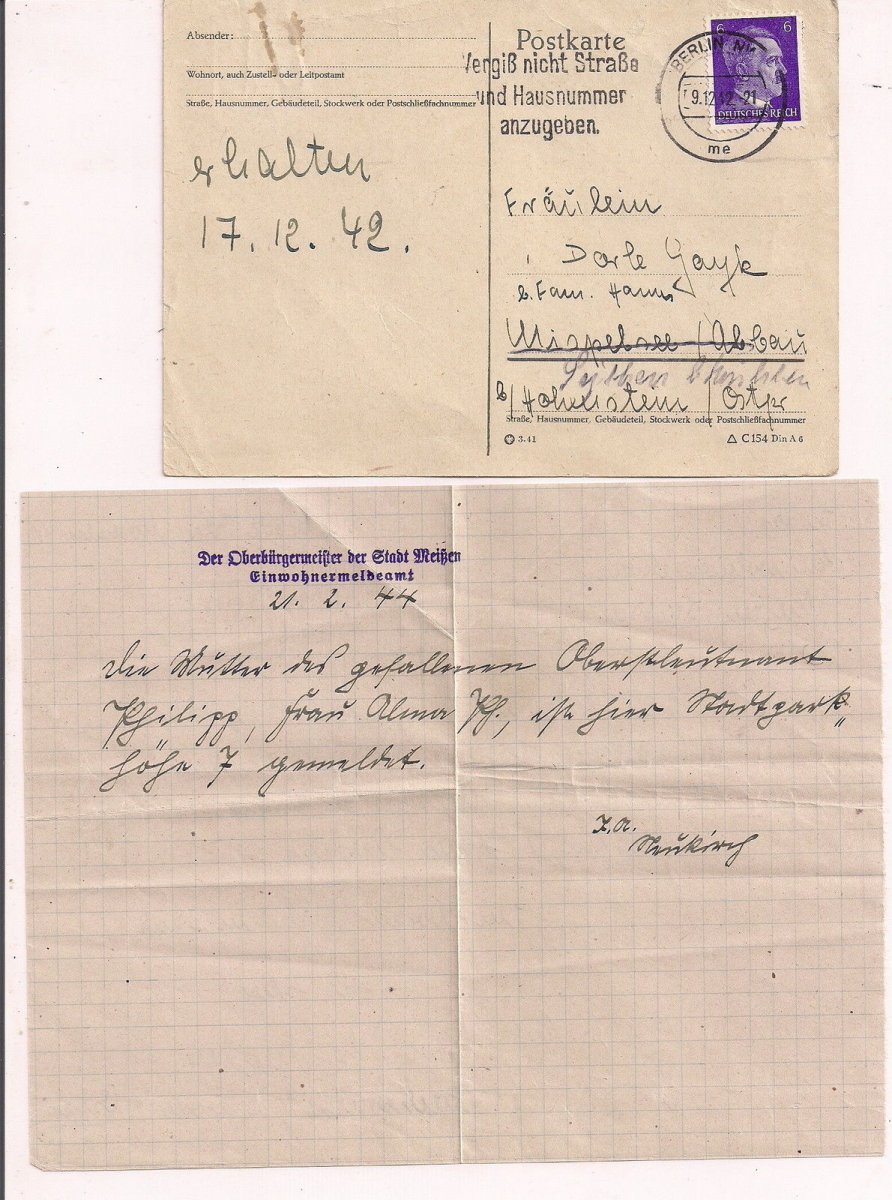 Absender:
Wohnort, auch Zustell- oder Leitpostamt
Straße, Hausnummer, Gebäudeteil, Stockwerk oder Postschließfachnummer
erhalten
17. 12. 42.
Postkarte
Vergiß nicht Straße
und Hausnummer
anzugeben.
BERLIN NW
9.12.42-21
me
6 6
DEUTSCHES REICH
Fräulein
Dorle Gayk
b. Fam. Hanns
Mispelsee / Abbau
b/ Hohenstein / Ostpr
Straße, Hausnummer, Gebäudeteil, Stockwerk oder Postschließfachnummer
3. 41
C 154 Din A 6
Der Oberbürgermeister der Stadt Meißen
Einwohnermeldeamt
21. 2. 44
Die Mutter des gefallenen Oberstleutnant
Philipp, Frau Alma Ph., ist hier Stadtpark„
höhe 7 gemeldet.
I. A.
Neukirch